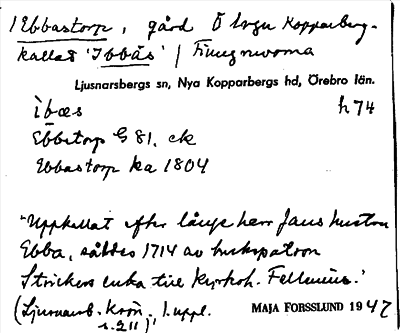 1 Ebbastorp, gård Ö Nya Kopparberg-
kallat 'Ibbäs' | Finngruvorna
Ljusnarsbergs sn, Nya Kopparbergs hd, Örebro län.
ìbæs h 74
Ebbetorp G 81, ek
Ebbastorp ka 1804
"Uppkallat efter länge herr Jans hustru
Ebba, såldes 1714 av brukspatron
Strickers enka till kyrkoh. Fellenius."
(Ljusnarsb. Krön. 1. uppl.
s. 211)
MAJA FORSSLUND 1947